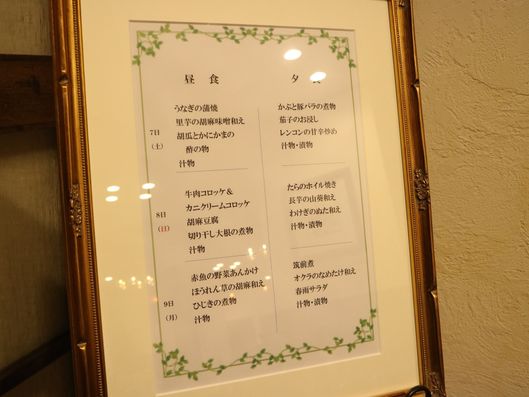 昼食
夕食
7日
(土)
うなぎの蒲焼
里芋の胡麻味噌和え
胡瓜とかにかまの
酢の物
汁物
かぶと豚バラの煮物
茄子のお浸し
レンコンの甘辛炒め
汁物・漬物
8日
(日)
牛肉コロッケ&
カニクリームコロッケ
胡麻豆腐
切り干し大根の煮物
汁物
たらのホイル焼き
長芋の山葵和え
わけぎのぬた和え
汁物・漬物
9日
(月)
赤魚の野菜あんかけ
ほうれん草の胡麻和え
ひじきの煮物
汁物
筑前煮
オクラのなめたけ和え
春雨サラダ
汁物・漬物